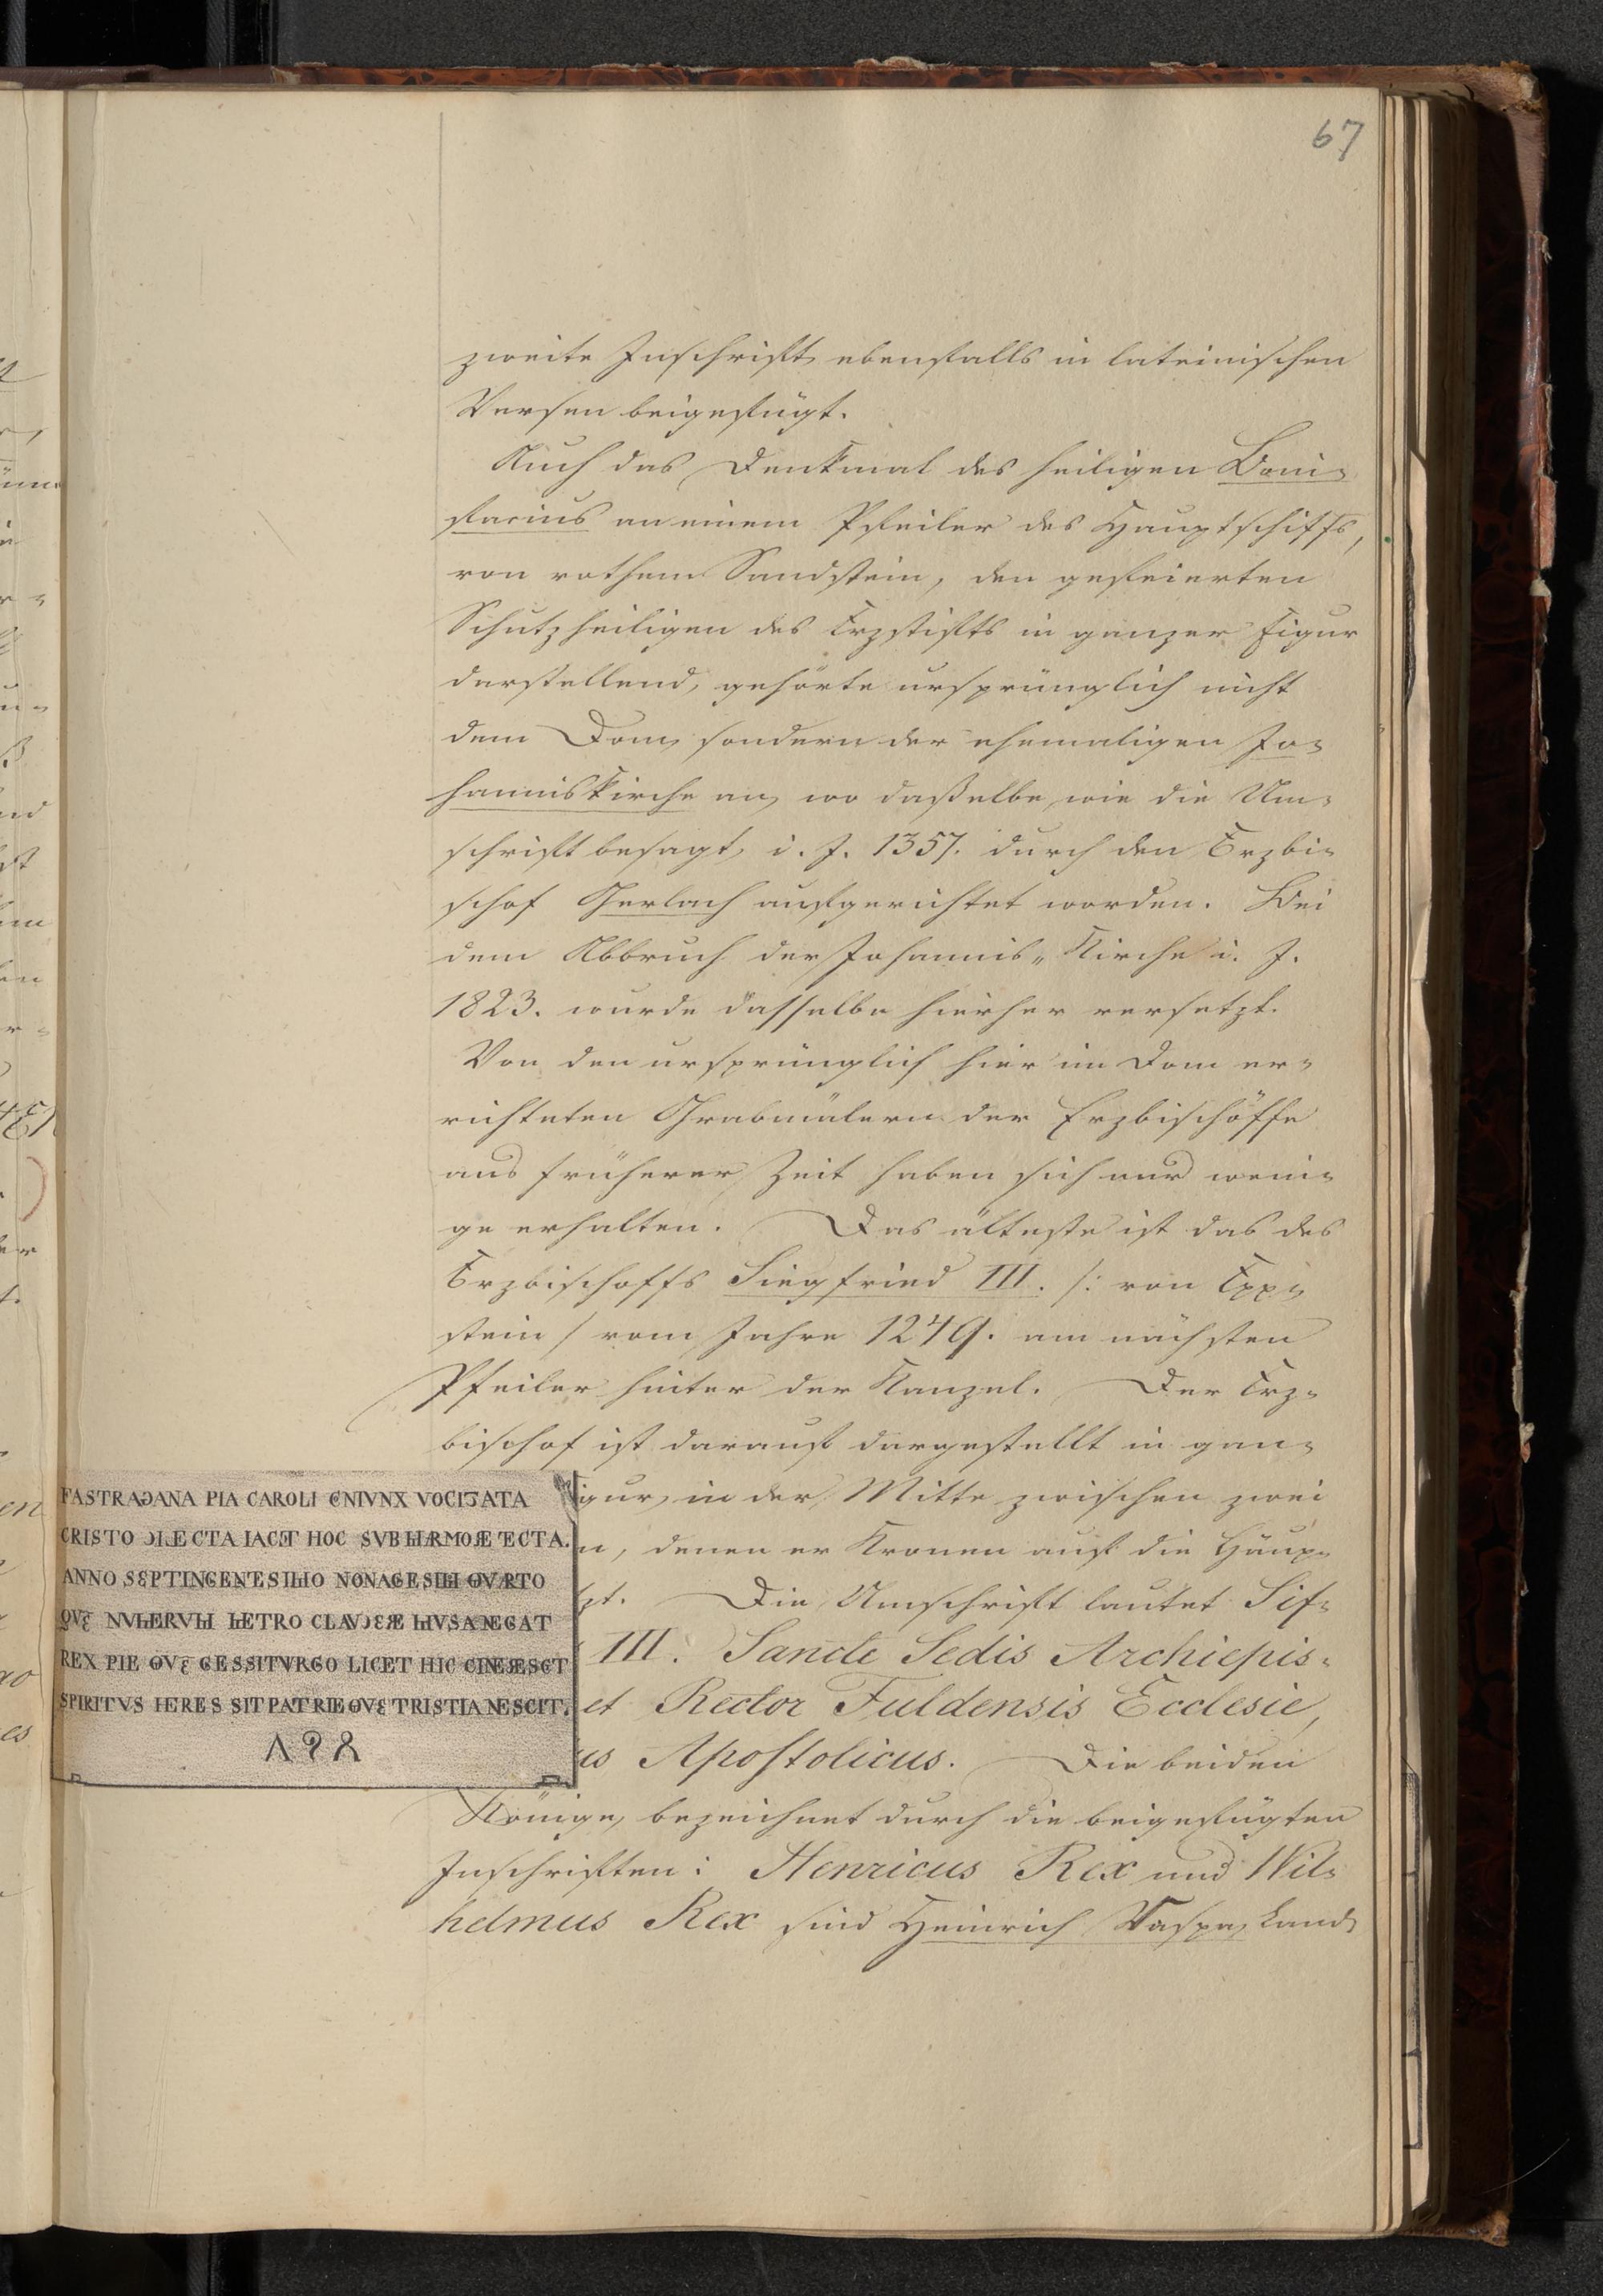 67
zweite Inschrift ebenfalls in lateinischen
Versen beigefügt.
Auch das Denkmal des heiligen Boni=
facius an einem Pfeiler des Hauptschiffs,
von rothem Sandstein, den gefeierten
Schutzheiligen des Erzstifts in ganzer Figur
darstellend, gehörte ursprünglich nicht
dem Dom, sondern der ehemaligen Jo=
hanniskirche an, wo daßelbe, wie die Um=
schrift besagt, i. J. 1357. durch den Erzbi=
schof Gerlach aufgerichtet worden. Bei
dem Abbruch der Johannis=Kirche i. J.
1823. wurde dasselbe hierher versetzt.
Von den ursprünglich hier im Dom er=
richteten Grabmälern der Erzbischöffe
aus früherer Zeit haben sich nur weni=
ge erhalten. Das älteste ist das des
Erzbischoffs Siegfried III. /: von Eppen
stein / vom Jahre 1249. am nächsten
Pfeiler hinter der Kanzel. Der Erz=
bischof ist darauf dargestellt in gan=
igur, in der Mitte zwischen zwei
n, denen er Kronen auf die Häup=
zt. Die Umschrift lautet Sif=
III. Sancte Sedis Archiepis=
et Rector Fuldensis Ecclesie,
us Apostolicus. Die beiden
Könige, bezeichnet durch die beigefügten
Inschriften: Henricus Rex und Wil=
helmus Rex sind Heinrich Raspe, Land=
FASTRADANA PIA CAROLI CNIVNX VOCITATA
CRISTO DILECTA IACET HOC SVB MARMORE TECTA.
ANNO SEPTINGENTESIMO NONAGESIMI QVARTO
QVE NVMERVM METRO CLAVDERE MVSA NEGAT
REX PIE QVE GESSIT VRGO LICET HIC CINERESCT
SPIRITVS HERES SIT PATRIE QVE TRISTIA NESCIT.